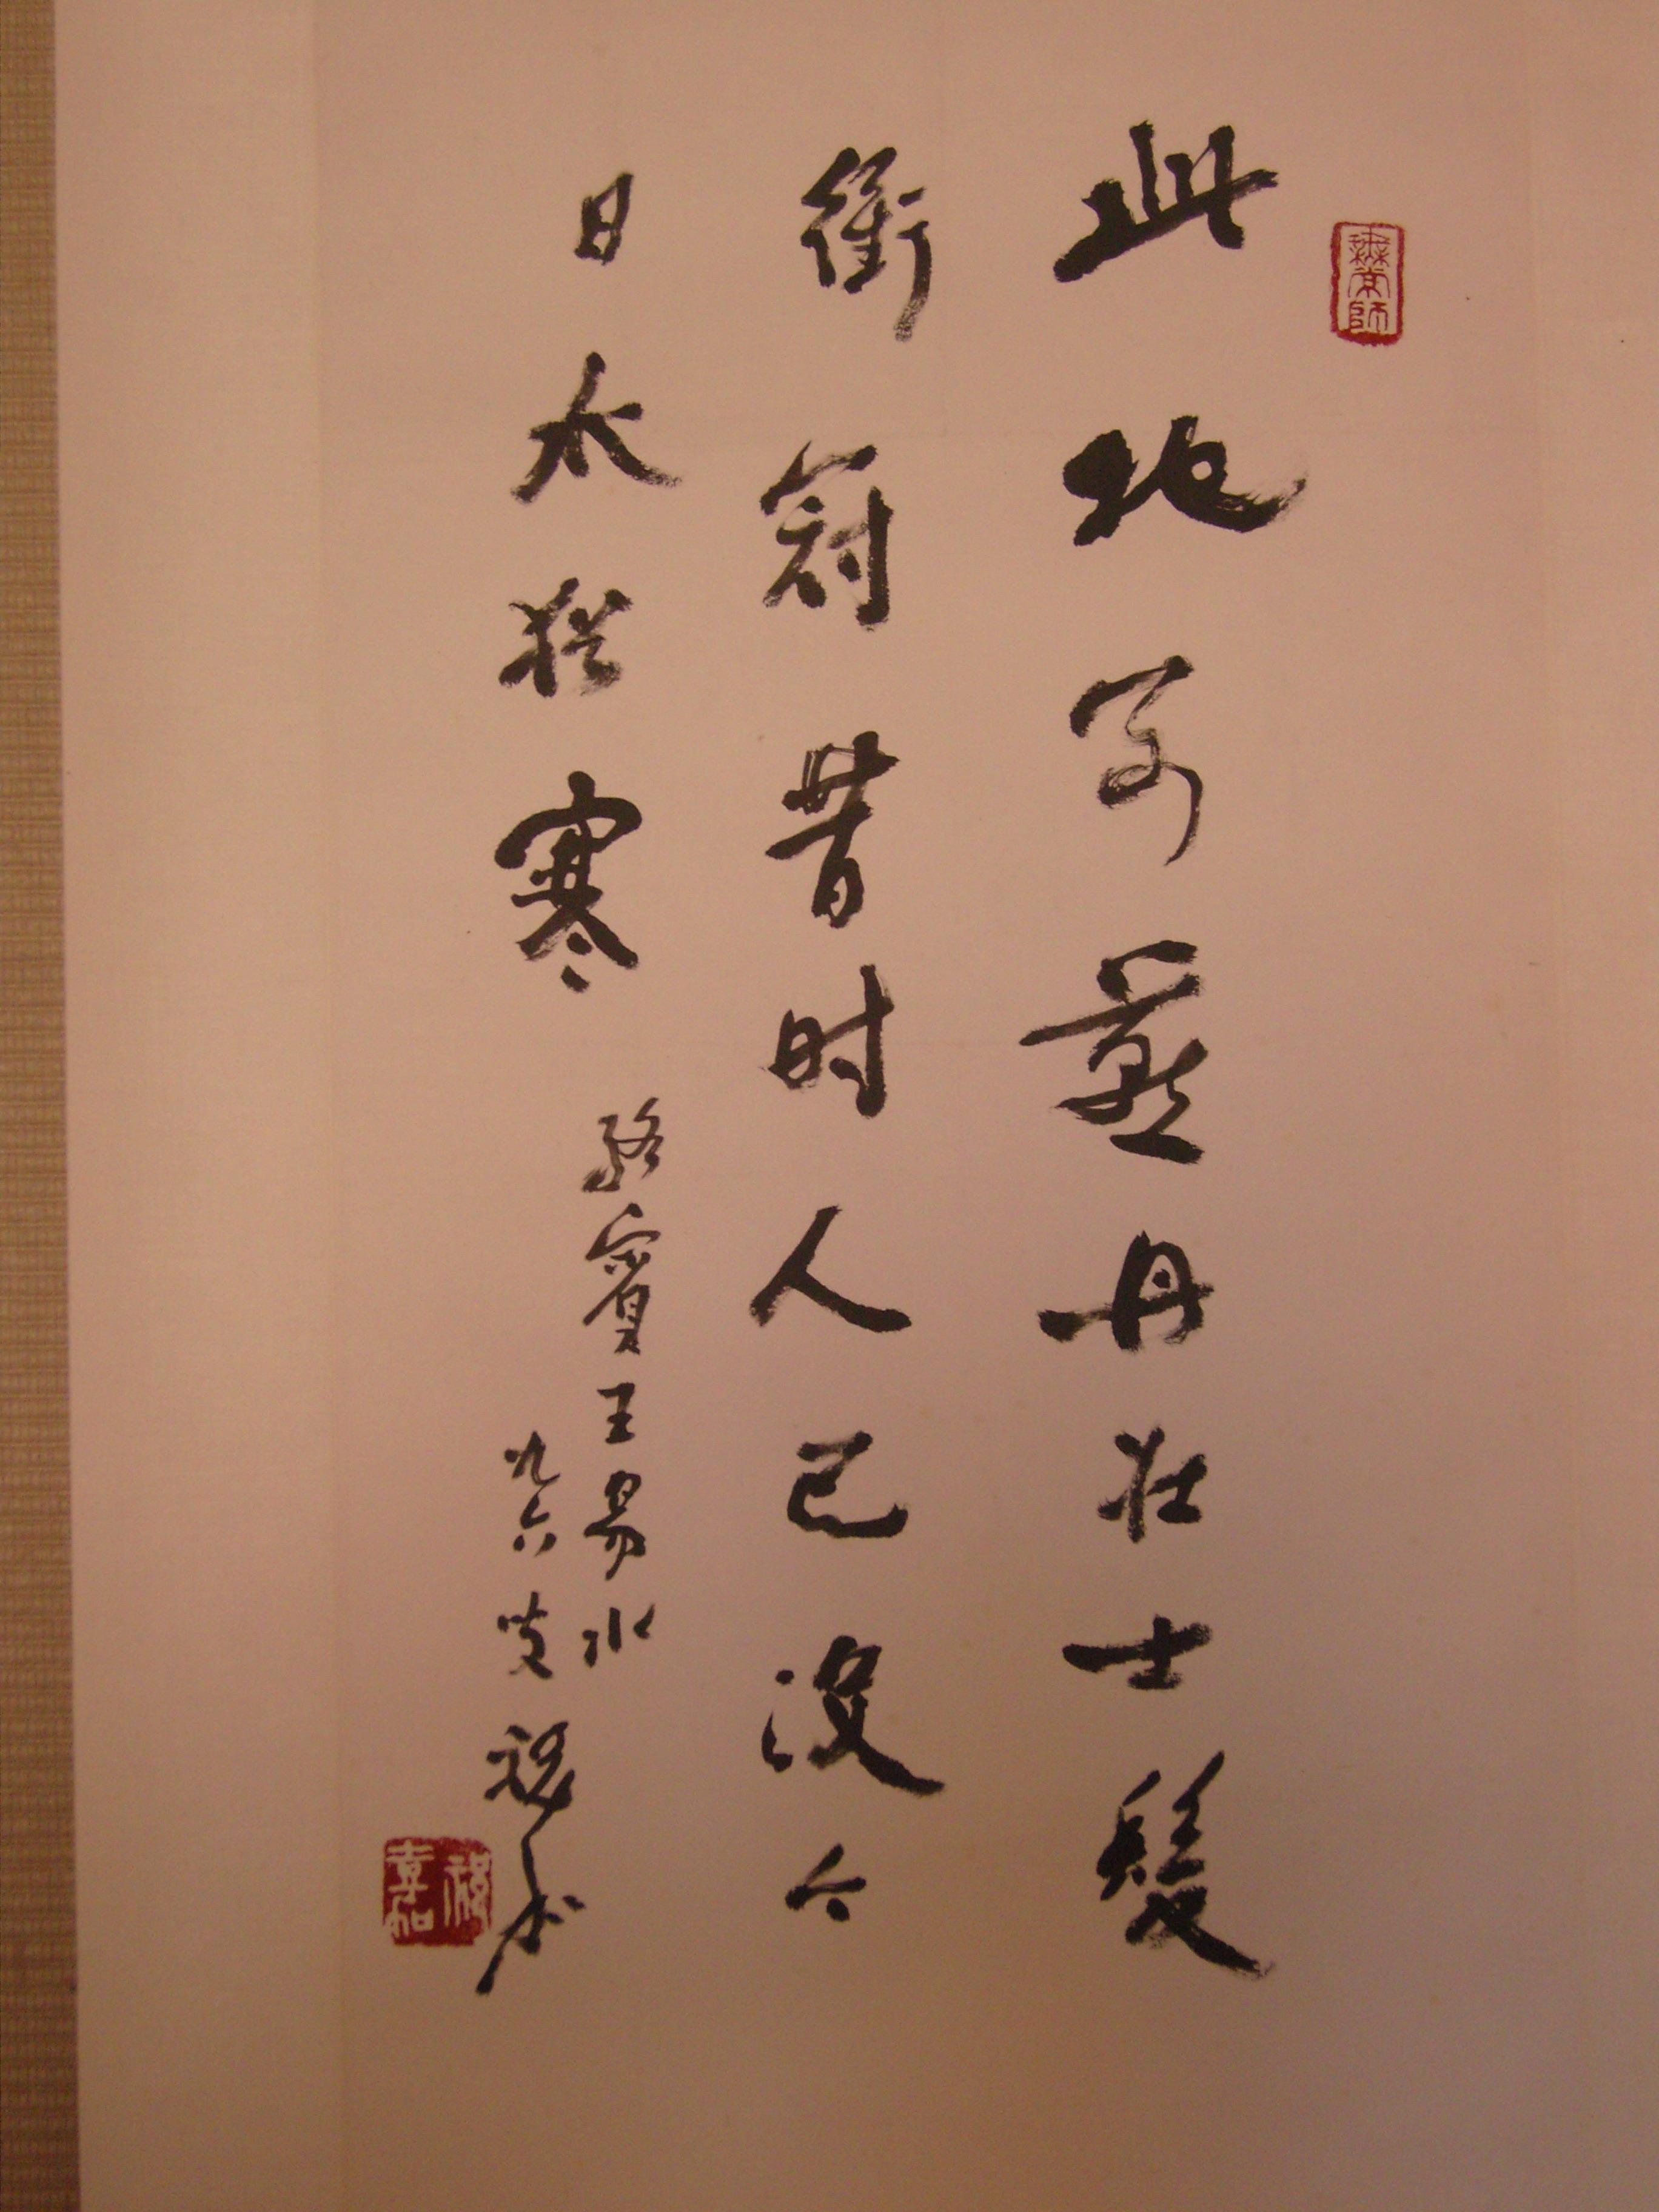 無常師
此地別燕丹壮士髮
衝冠昔时人已沒今
日水猶寒
駱賓王易水
九六叟